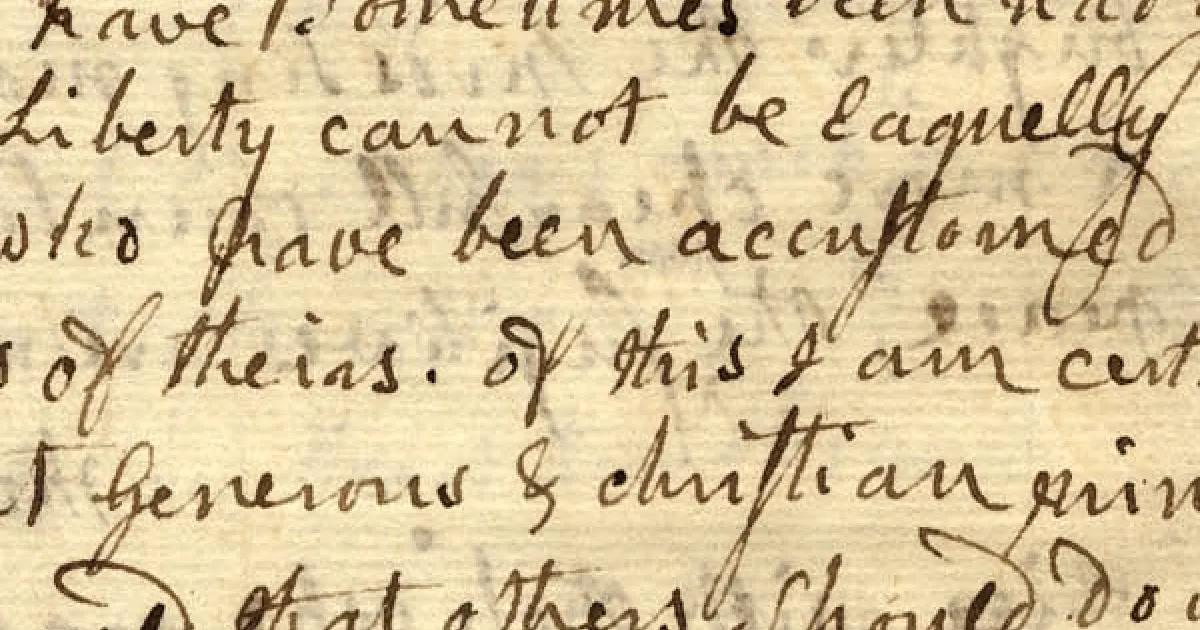 have Sometimes been
Liberty cannot be Eaquelly
who have been accustomed
of theirs. of this I am cert
Generous & christian min
that others Should do